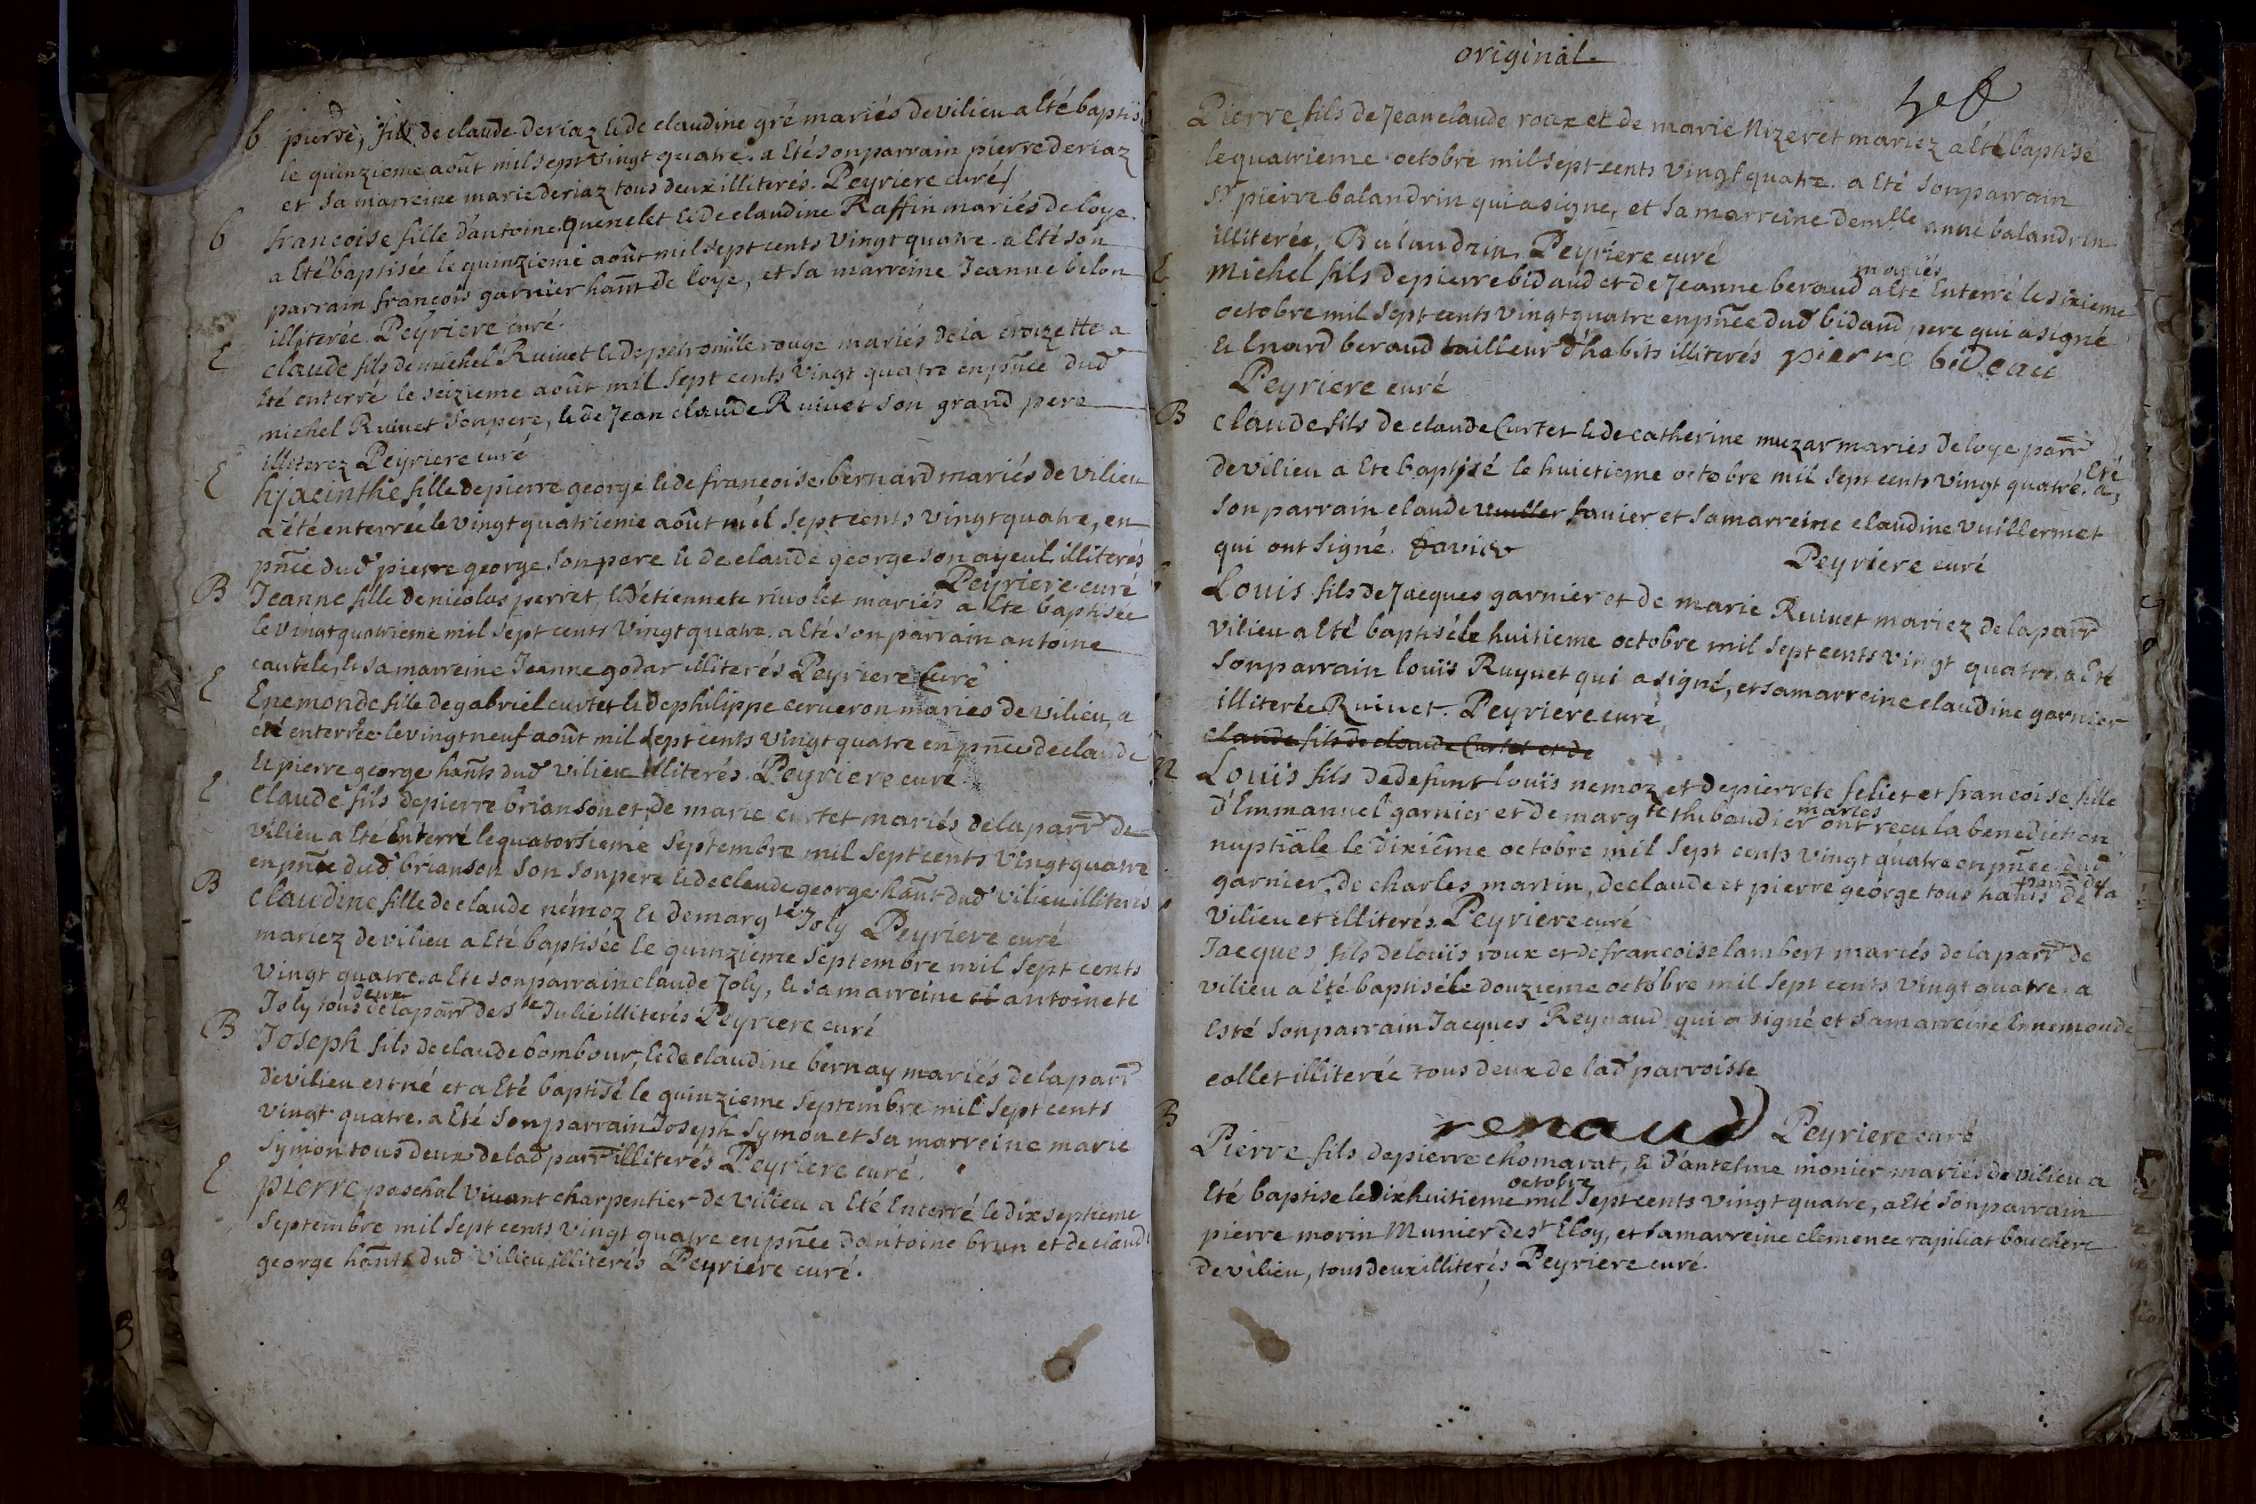 b pierre, fils de claude deriaz & de claudine gré mariés de vilieu a Eté baptis
le quinzieme août mil sept vingt quatre. a Eté son parrain pierre deriaz
et sa marreine marie deriaz tous deux illiterés. Peyriere curé
b francoise fille d'antoine quenelet & de claudine Raffin mariés de loye.
a Eté baptisée le quinzieme août mil sept cents vingt quatre. a Eté son
parrain françois garnier hant de loye, et sa marreine Jeanne belon
illiterée. Peyriere curé.
E claude fils de michel Ruivet & de peironille rouge mariés de la croizette a
Eté enterré le seizieme août mil sept cents vingt quatre en pñce dud
michel Ruivet son pere, & de Jean claude Ruivet son grand pere
illiterez Peyriere curé
E hjacinthe fille de pierre george & de francoise bernard mariés de vilieu
a été enterrée le vingt quatrieme août mil sept cents vingt quatre, en
pñce dud pierre george son pere & de claude george son ayeul illiterés
Peyriere curé
B Jeanne fille de nicolas perret & d'étiennete rivolet mariés a Eté baptisée
le vingt quatrieme mil sept cents vingt quatre. a Eté son parrain antoine
cautele, & sa marreine Jeanne godar illiterés Peyriere Curé
E Enemonde fille de gabriel curtet & de philippe cerveron mariés de vilieu, a
été enterrée le vingt neuf août mil sept cents vingt quatre en pñce de claude
& pierre george hants dud vilieu illiterés. Peyriere curé
E Claude fils de pierre brianson et de marie curtet mariés de la parr de
vilieu a Eté Enterré le quatorsieme septembre mil sept cents vingt quatre
en pñce dud brianson son son pere & de claude george hant dud vilieu illiterés
B claudine fille de claude némoz & de marg te Joly Peyriere curé
mariez de vilieu a Eté baptisée le quinzieme septembre mil sept cents
vingt quatre. a Ete son parrain claude Joly, & sa marreine et antoinete
Joly tous deux de la parr de Ste Julie illiterés Peyriere curé
B Joseph fils de claude bombour, & de claudine bernay mariés de la parr
de vilieu est né et a Eté baptisé le quinzieme septembre mil sept cents
vingt quatre. a Eté son parrain Joseph Symon et sa marreine marie
symon tous deux de lad parr illiterés Peyriere curé.
E pierre paschal vivant charpentier de vilieu a Eté Enterré le dix septieme
septembre mil sept cents vingt quatre en pñce d'antoine brun et de claude
george hants dud vilieu, illiterés Peyriere curé.
original
Pierre fils de Jean claude roux et de marie Nizeret mariez a Eté baptisé
le quatrieme octobre mil sept cents vingt quatre. a Eté son parrain
sr pierre balandrin qui a signe, et sa marreine demlle anne balandrin
illiterée, Balandrin Peyriere curé
E Michel fils de pierre bidaud et de Jeanne beraud mariés a Eté Enterré le sixieme
octobre mil sept cents vingt quatre en pñce dud bidaud pere qui a signé
& Enard beraud tailleur d'habits illiterés pierre bideau
Peyriere curé
B claude fils de claude Curtet & de catherine muzar mariés de loye parr
de vilieu a Ete baptisé le huictieme octobre mil sept cents vingt quatre. a Eté
son parrain claude vuiller favier et sa marreine claudine vuillermet
qui ont signé. favier Peyriere curé
Louis fils de Jacques garnier et de marie Ruivet mariez de la parr
vilieu a Eté baptisé le huitieme octobre mil sept cents vingt quatre. a Eté
son parrain louis Ruyuet qui a signé, et sa marreine claudine garnier
illiterée Ruivet. Peyriere curé
claude fils de claude Curtet et de
Louis fils de defunt louis nemoz et de pierrete feliet et francoise fille
d'Emmanuel garnier et de marg te thibaudier mariés ont recu la benediction
nuptiale le dixiême octobre mil sept cents vingt quatre en pñce dud
garnier, de charles martin, de claude et pierre george tous hants de la parr de
vilieu et illiterés Peyriere curé
Jacques, fils de louis roux et de francoise lambert mariés de la parr de
vilieu a Eté baptisé le douzieme octobre mil sept cents vingt quatre. a
Esté son parrain Jacques Reynaud qui a signé et sa marreine Ennemonde
collet illiterée tous deux de lad parroisse
renaud Peyriere curé
B Pierre fils de pierre chomarat, & d'antelme monier mariés de vilieu a
Eté baptise le dix huitieme octobre mil sept cents vingt quatre, a Eté son parrain
pierre morin Munier de st Eloy, et sa marreine clemence rapiliat bouchere
de vilieu, tous deux illiterés Peyriere curé.